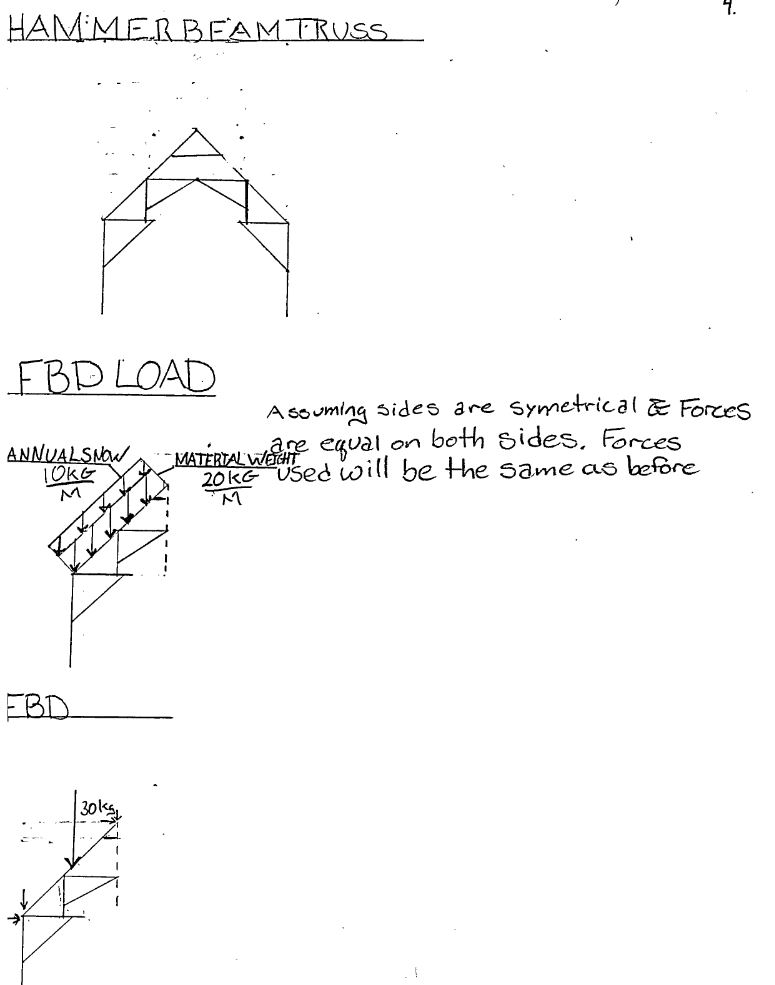 4.
HAMMER BEAM TRUSS
FBD LOAD
Assuming sides are symetrical & Forces
are equal on both sides. Forces
used will be the same as before
ANNUAL SNOW
10KG
M
MATERIAL WEIGHT
20KG
M
FBD
30kg